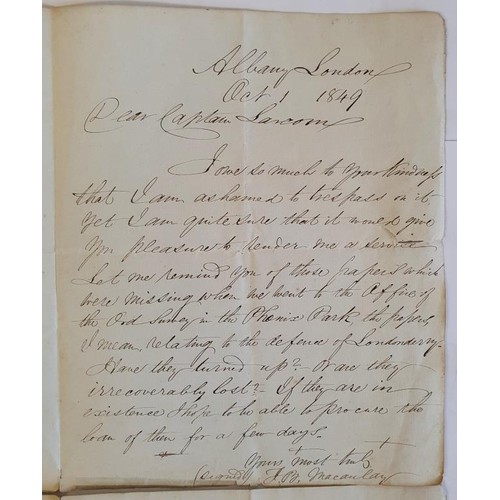 Albany London
Oct 1 1849
Dear Captain Larcom
I owe so much to your kindness
that I am ashamed to trespass on it
yet I am quite sure that it would give
you pleasure to render me a service
Let me remind you of those papers which
were missing when we went to the Office of
the Ord Survey in the Phenix Park, the papers,
I mean, relating to the defence of Londonderry.
Have they turned up? Or are they
irrecoverably lost? If they are in
existence I hope to be able to procure the
loan of them for a few days.
Yours most truly
(signed) T B. Macaulay